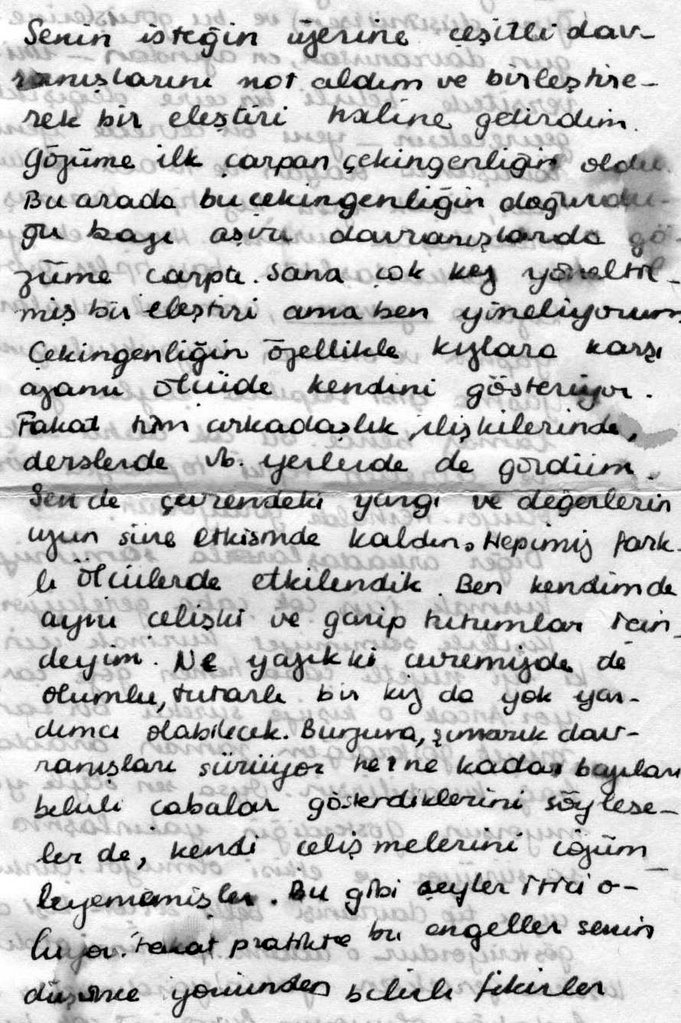 Senin isteğin üzerine çeşitli dav-
ranışlarını not aldım ve birleştire-
rek bir eleştiri haline getirdim.
Gözüme ilk çarpan çekingenliğin oldu.
Bu arada bu çekingenliğin doğurdu-
ğu bazı aşırı davranışlarda gö-
züme çarptı. Sana çok kez yöneltil-
miş bir eleştiri ama ben yineliyorum
Çekingenliğin özellikle kızlara karşı
azami ölçüde kendini gösteriyor.
Fakat tüm arkadaşlık ilişkilerinde,
derslerde vb. yerlerde de gördüm.
Sen de çevrendeki yargı ve değerlerin
uzun süre etkisinde kaldın. Hepimiz fark-
lı ölçülerde etkilendik. Ben kendimde
aynı çelişki ve garip tutumlar için-
deyim. Ne yazık ki çevremizde de
olumlu, tutarlı bir kız da yok yar-
dımcı olabilecek. Burjuva, şımarık dav-
ranışları sürüyor her ne kadar bazıları
belirli çabalar gösterdiklerini söylese-
ler de, kendi çelişmelerini çözüm-
leyememişler. Bu gibi şeyler itici o-
luyor. Fakat pratikte bu engeller senin
düşünce yönünden belirli fikirler